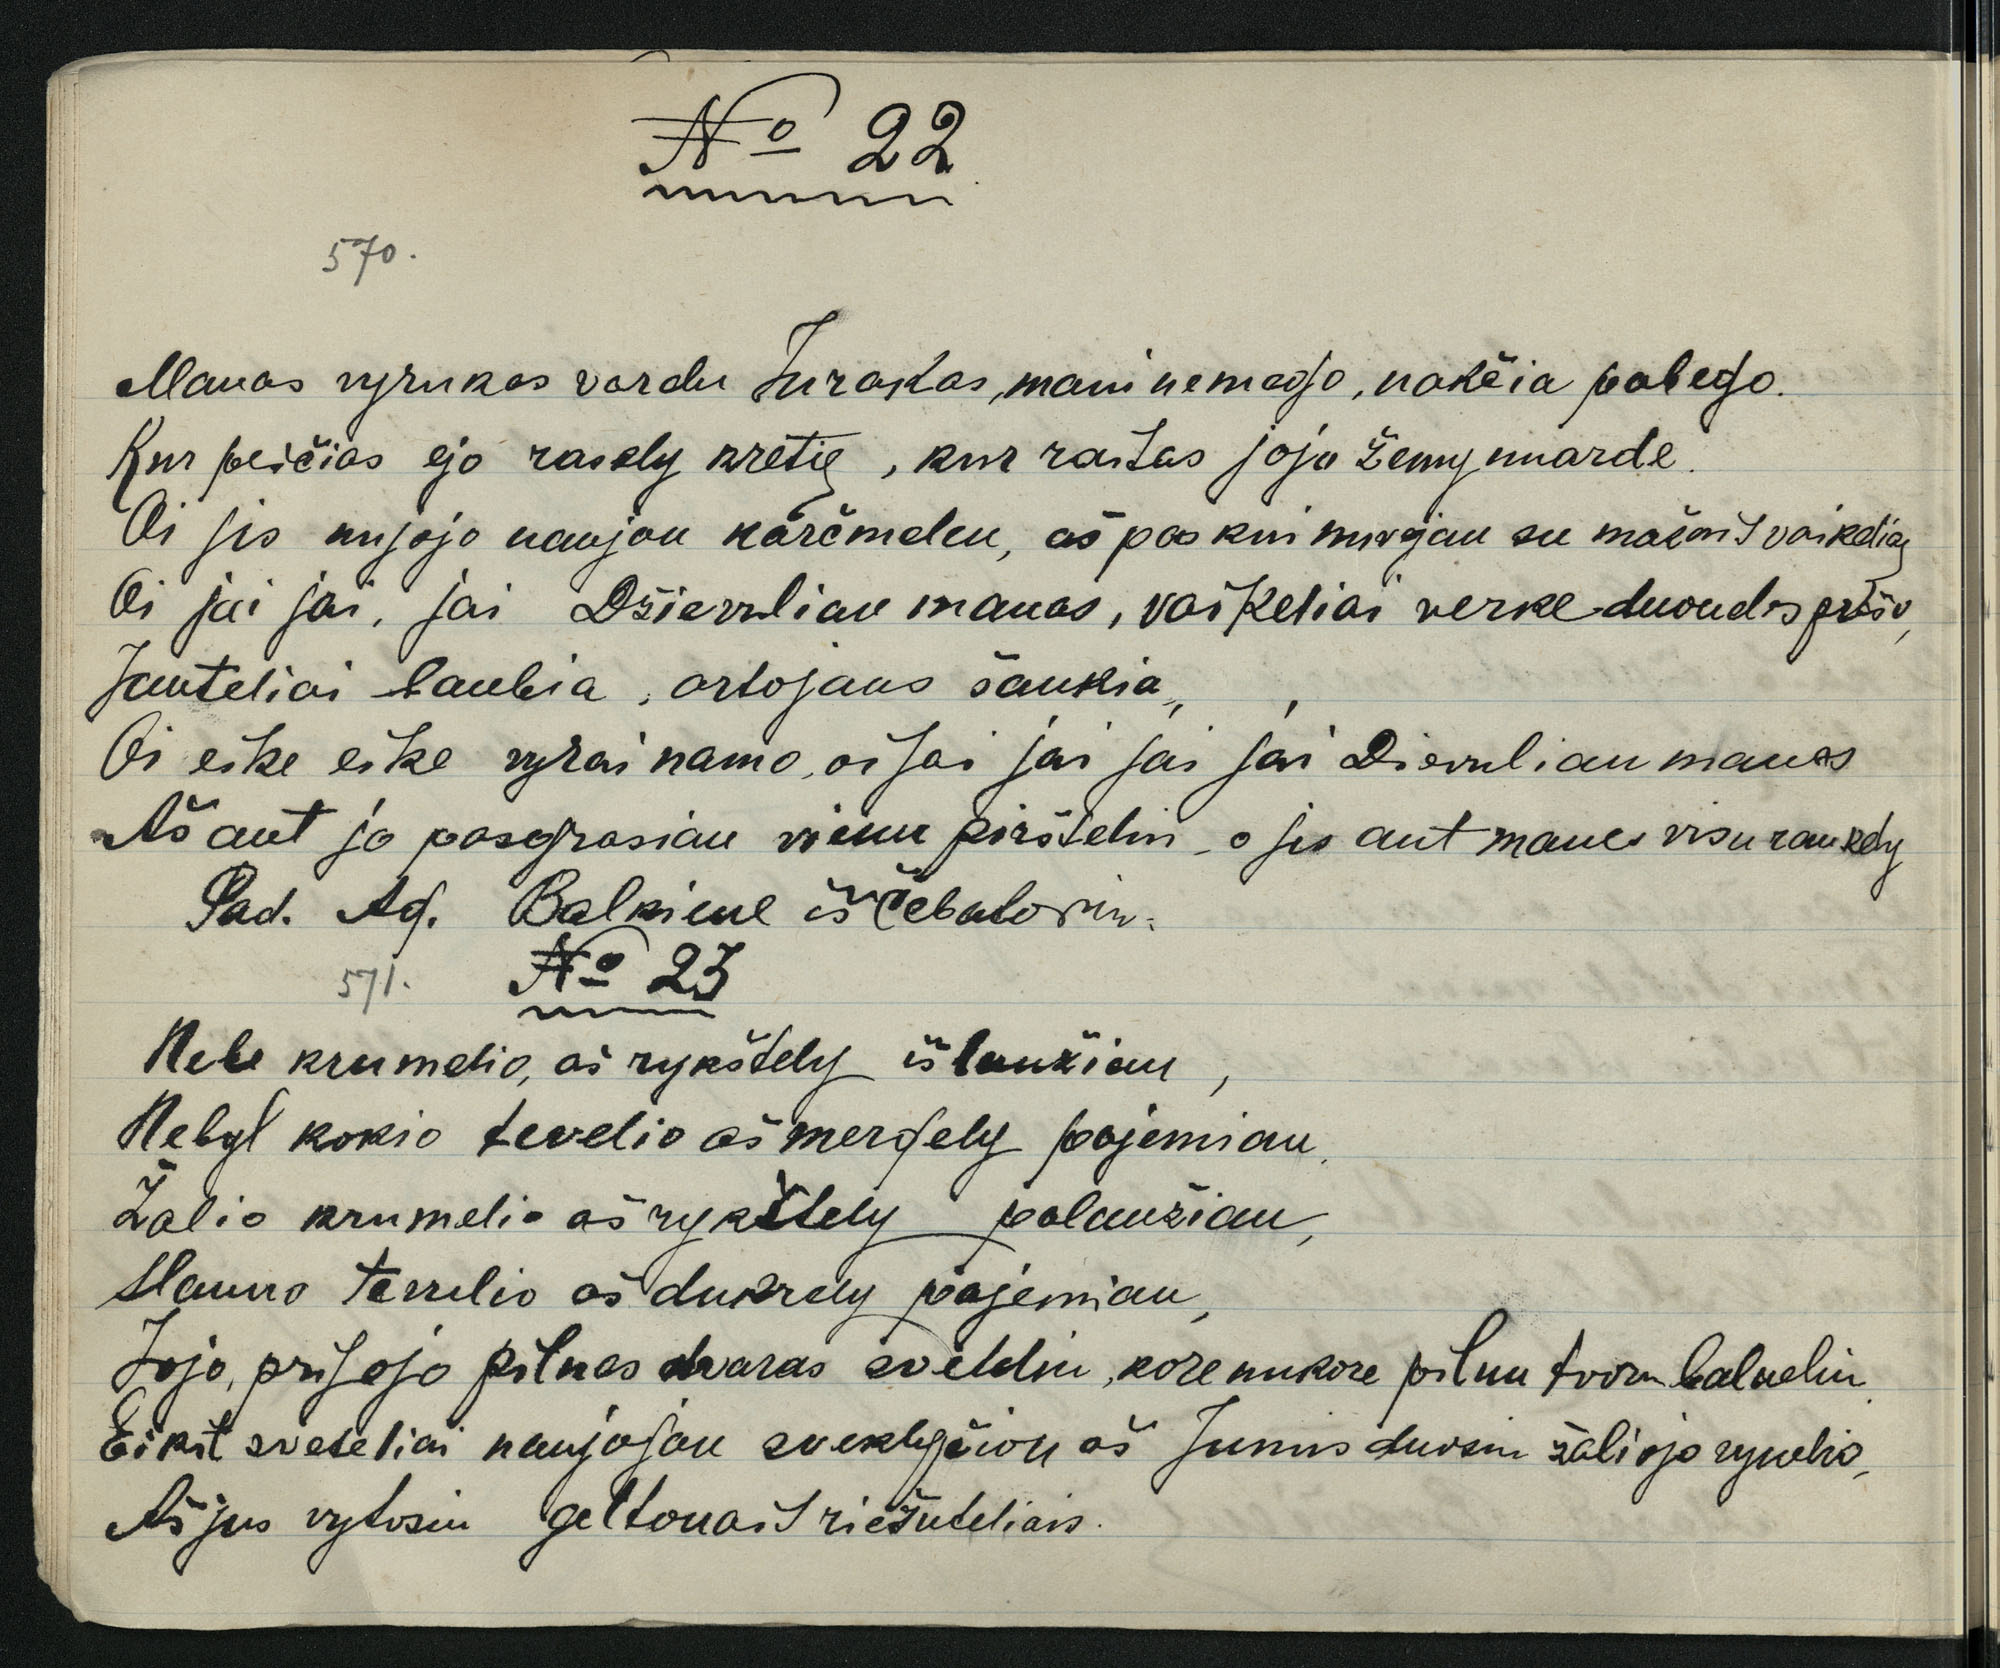 № 22
570.
Manas vyrukas vardu Jurakas, mani nemego, nakčia pabego.
Kur pesčias ejo rasely krėtie, kur raitas jojo žemy muarde.
Oi jis nujojo naujon karčmelen, aš paskui nuvejau su mažais vaikeliais
Oi jai jai, jai Dzievuliau manas, vaikeliai verke duonelės prašo,
Jauteliai baubia, artojaus šaukia,
Oi eike eike vyrai namo, oi jai jai jai jai Dievuliau manas
Aš ant jo pasgrasiau vienu piršteliu o jis ant manes visu rankely
Pad. Ag. Balkiene iš Čebatorių.
571. № 23
Nebe krumelio, aš rykštely išlaužiau,
Nebyt kokio tevelio aš mergely pajemiau.
Žalio krumelio aš rykštely palaužiau,
Mauno tevelio aš dukrely pajemiau,
Jojo, prijojo pilnas dvaras sveteliu, kore nukore pilnu tvoru balneliu.
Eikit sveteliai naujojon sveklyčion aš Jumis duosiu žaliojo vynelio,
Aš jus vytosiu geltonais riešuteliais.